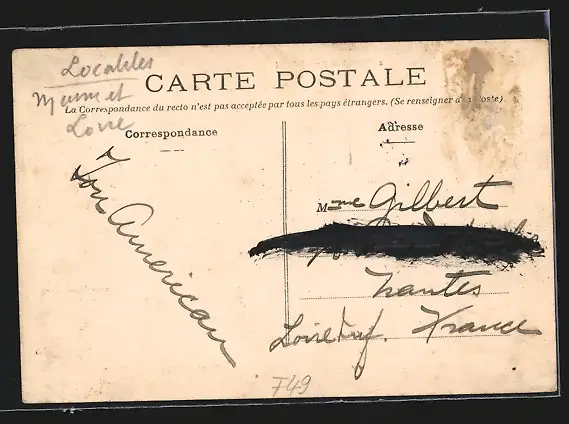 Locables
Maine et
Loire
CARTE POSTALE
La Correspondance du recto n'est pas acceptée par tous les pays étrangers. (Se renseigner à la Poste)
Correspondance
Ton American
Adresse
Mme Gilbert
Nantes
Loire Inf. France
F49